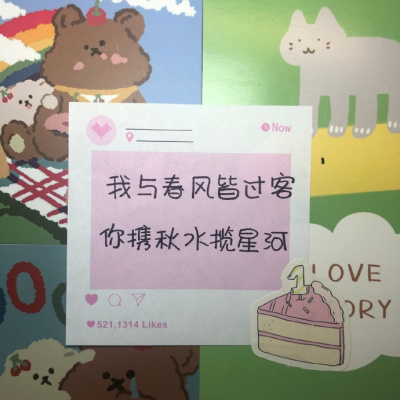 Now
我与春风皆过客
你携秋水揽星河
521,1314 Likes
LOVE
ORY
1